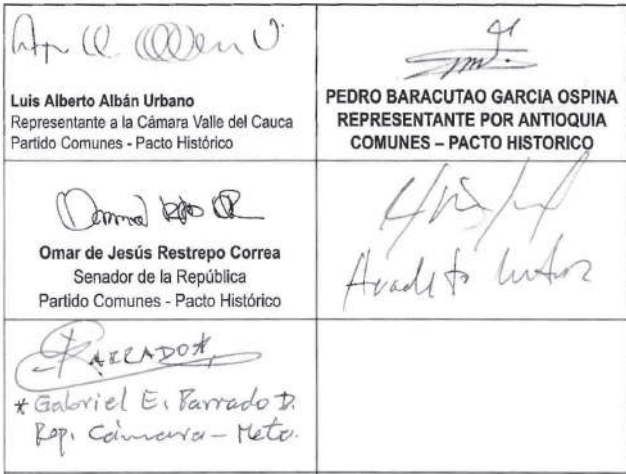 Luis Alberto Albán Urbano
Representante a la Cámara Valle del Cauca
Partido Comunes - Pacto Histórico
PEDRO BARACUTAO GARCIA OSPINA
REPRESENTANTE POR ANTIOQUIA
COMUNES – PACTO HISTORICO
Omar de Jesús Restrepo Correa
Senador de la República
Partido Comunes - Pacto Histórico
PARRADO*
* Gabriel E. Parrado D.
Rep. Cámara - Meta.